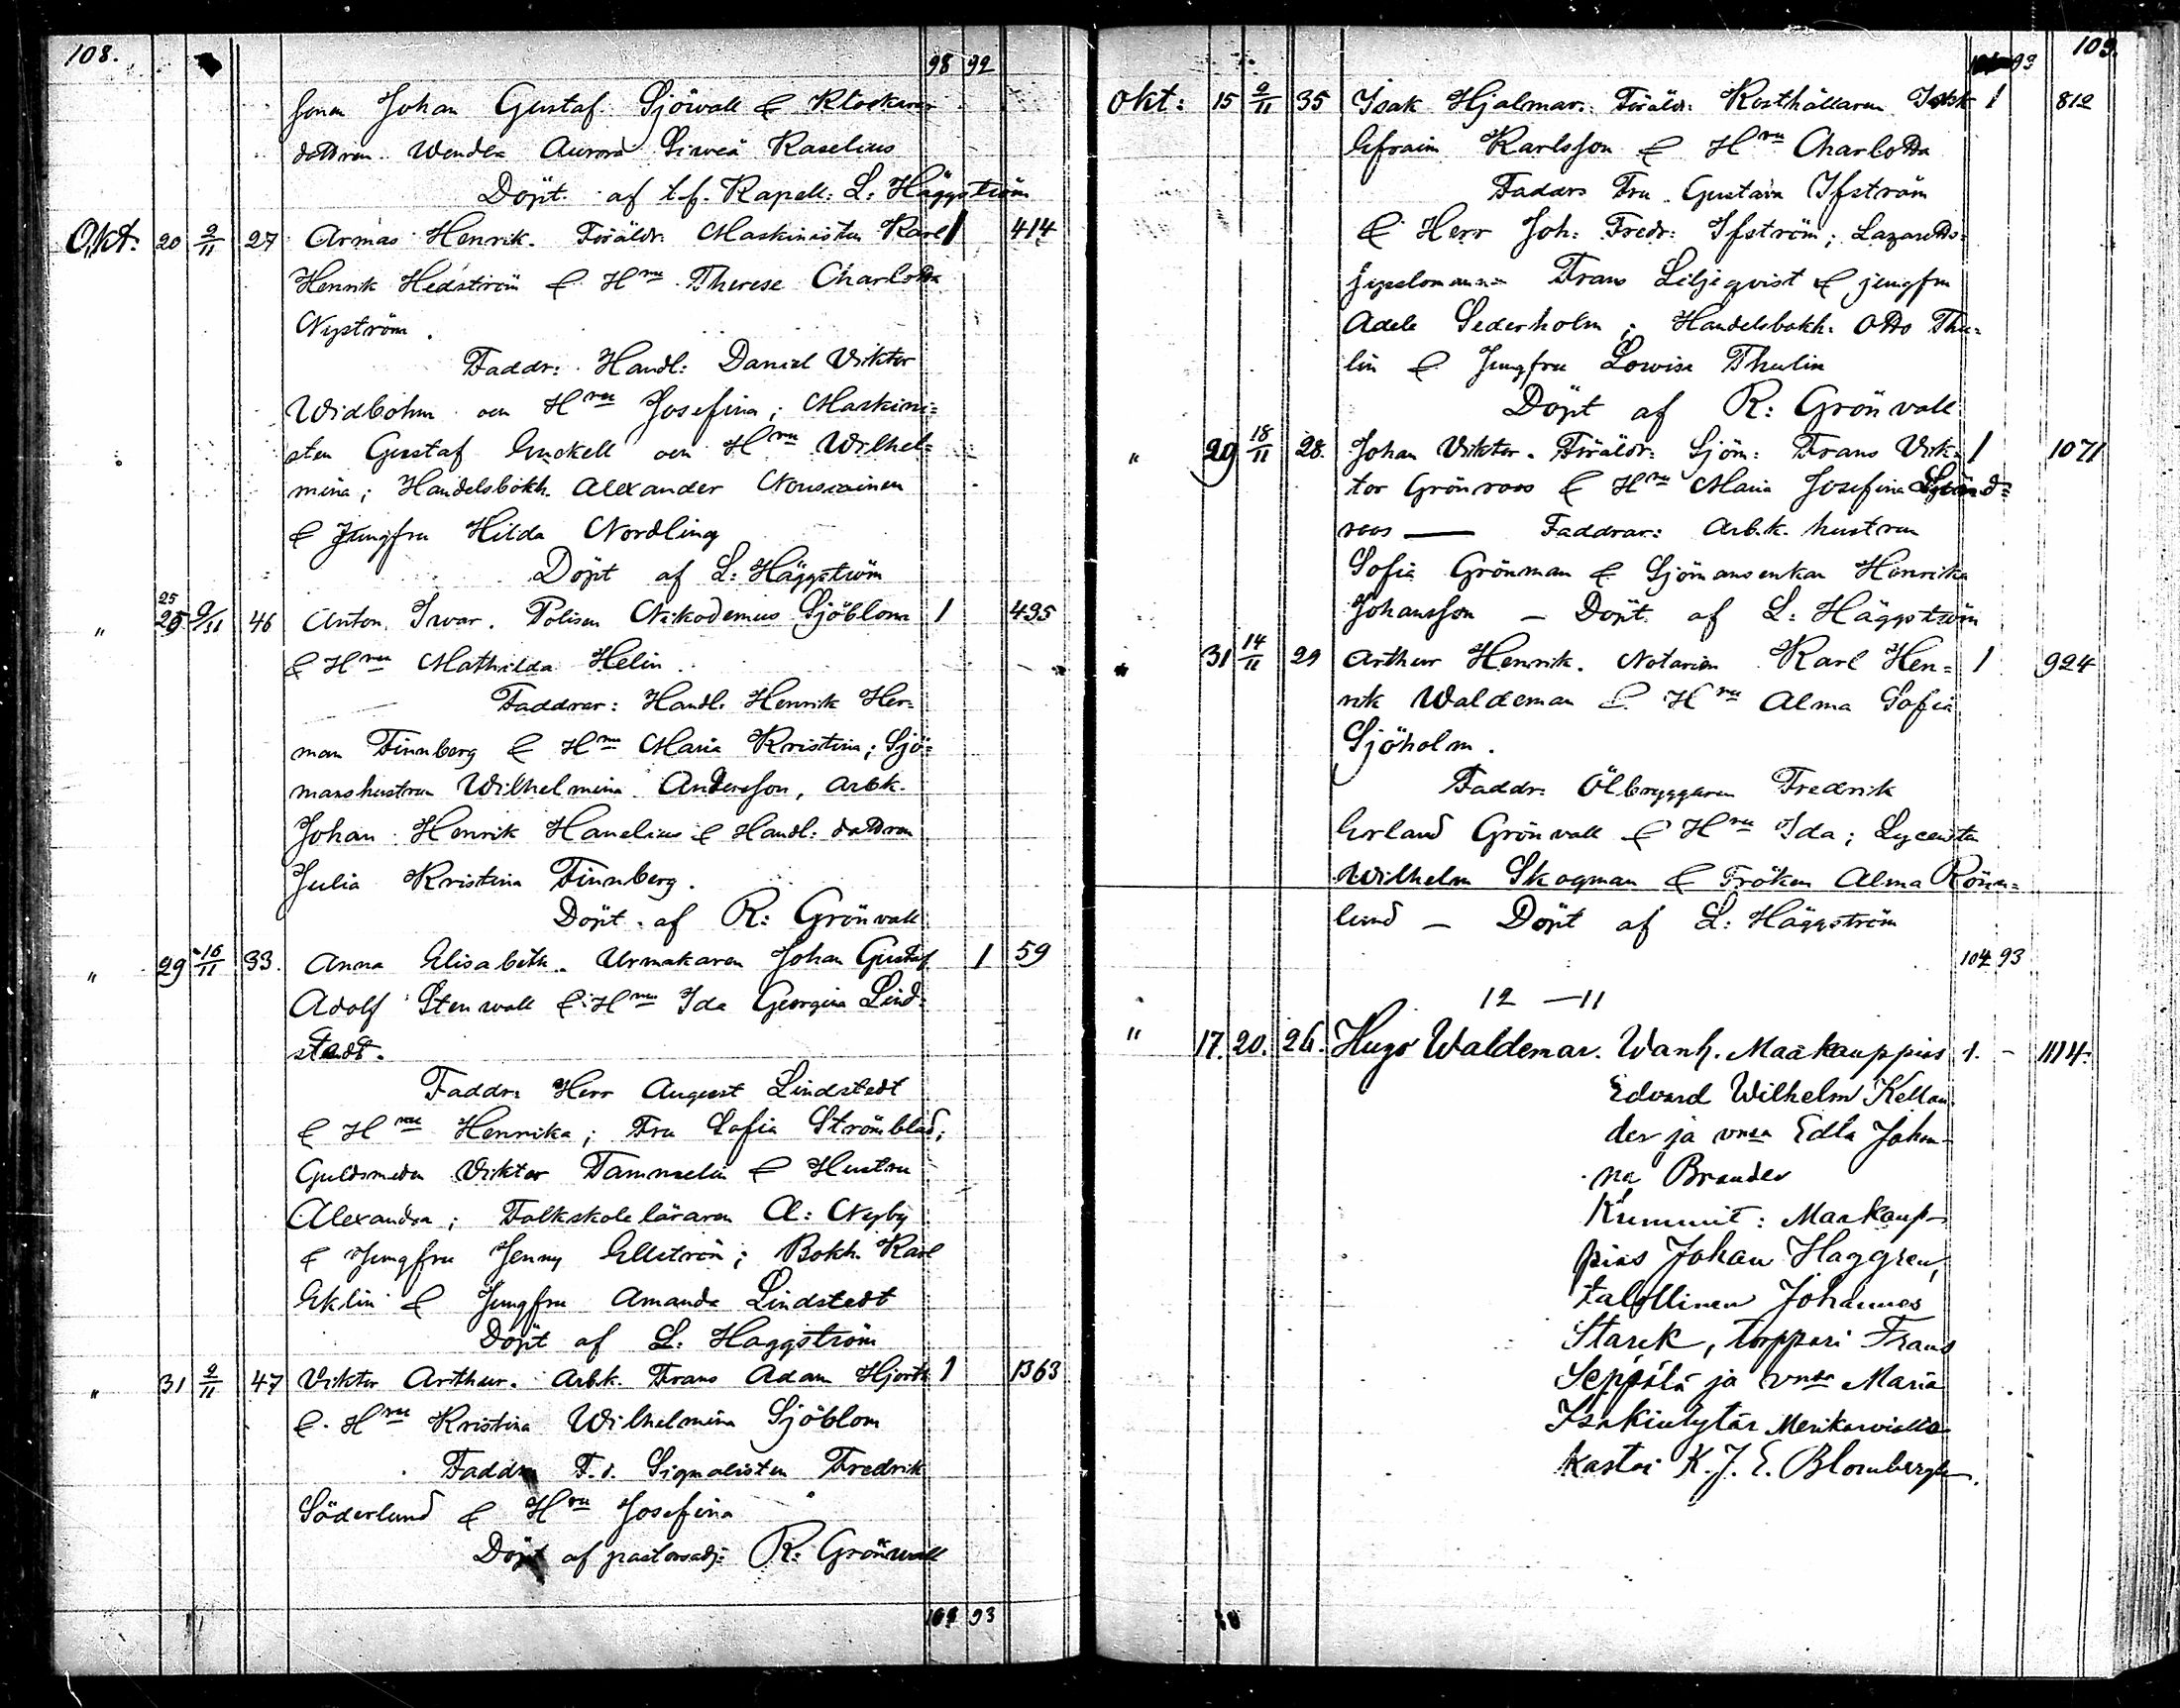 108.
98 92
sonen Johan Gustaf Sjövall & Klockare
dottren Wendla Aurora Raselius
Döpt af t.f. Kapell: L: Häggström
Okt: 20 2/11 27 Armas Henrik. Föräldr: Maskinisten Karl 1 414
Henrik Hedström & Hru Therese Charlotta
Nyström.
Faddr: Handl: Daniel Viktor
Widbohm och Hru Josefina; Maskini=
sten Gustaf Enckell och Hru Wilhel=
mina; Handelsbokh. Alexander Nousiainen
& Jungfru Hilda Nordling
Döpt af L: Häggström
25
" 25 9/11 46 Anton Ivar. Polisen Nikodemus Sjöblom 1 495
& Hru Mathilda Helin.
Faddrar: Handl. Henrik Her=
man Finnberg & Hru Maria Kristina; Sjö=
manshustrun Wilhelmina Andersson, Arbk.
Johan Henrik Hanelius & Handl: dottren
Julia Kristina Finnberg.
Döpt af R: Grönvall
" 29 16/11 33. Anna Elisabeth. Urmakaren Johan Gustaf 1 59
Adolf Stenwall & Hru Ida Georgina Lind=
stedt.
Faddr: Herr August Lindstedt
& Hru Henrika; Fru Sofia Strömblad;
Guldsmeden Viktor Tammelin & Hustru
Alexandra; Folkskoleläraren A: Nyby
& Jungfru Jenny Ellström; Bokh. Karl
Eklin & Jungfru Amanda Lindstedt
Döpt af L: Häggström
" 31 2/11 47 Viktor Arthur. Arbk. Frans Adam Hjorth 1 1363
& Hru Kristina Wilhelmina Sjöblom
Faddrar F.d. Signalisten Fredrik
Söderlund & Hru Josefina
Döpt af pastorsadj: R: Grönwall
104 93
109.
93
Okt: 15 2/11 35 Isak Hjalmar. Föräldr: Kosthållaren Isak 1 812
Efraim Karlsson & Hru Charlotta
Faddrs Fru Gustava Ifström
& Herr Joh: Fredr: Ifström; Lazaretts=
sysslomannen Frans Liljeqvist & jungfru
Adele Sederholm; Handelsbokh. Otto Thu=
lin & Jungfru Lovisa Thulin
Döpt af R: Grönvall
" 29 18/11 28. Johan Viktor. Föräldr: Sjöm: Frans Vik= 1 1071
tor Grönroos & Hru Maria Josefina
roos — Faddrar: Arb.k. hustrun
Sofia Grönman & Sjömansenkan Henrika
Johansson — Döpt af L: Häggström
" 31 14/11 29 Arthur Henrik. Notarien Karl Hen= 1 924
rik Waldeman & Hru Alma Sofia
Sjöholm.
Faddr: Ölbryggaren Fredrik
Erland Grönvall & Hru Ida; Lyceisten
Wilhelm Skogman & Fröken Alma Rönn=
lund — Döpt af L: Häggström
104 93
12 — 11
" 17. 20. 26. Hugo Waldemar. Wanh. Maakauppias 1. - 1114.
Edvard Wilhelm Kellan-
der ja vmsa Edla Johan-
na Brander
Kummit: Maakaup-
pias Johan Haggren,
talollinen Johannes
Starck, torppari Frans
Seppälä ja vmsa Maria
Isakintytär Merikarvialla
kastoi K. J. E. Blombergh.